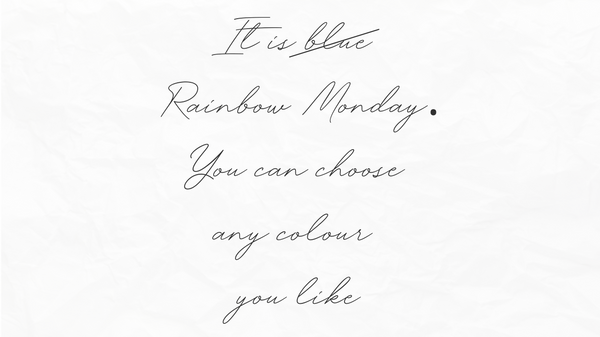 It is blue
Rainbow Monday.
You can choose
any colour
you like